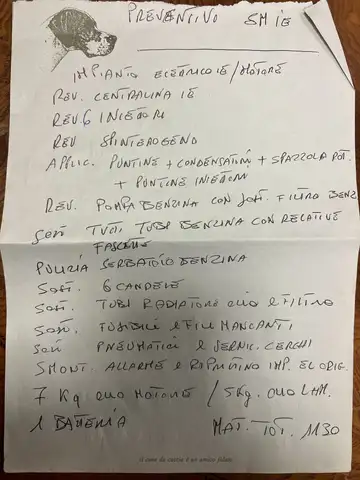 PREVENTIVO SM IE
IMPIANTO ELETTRICO IE/MOTORE
REV. CENTRALINA IE
REV. 6 INIETTORI
REV SPINTEROGENO
APPLIC. PUNTINE + CONDENSATORI + SPAZZOLA ROT.
+ PUNTINE INIETTORI
REV. POMPA BENZINA CON SOST. FILTRO BENZ
SOST TUTTI TUBI BENZINA CON RELATIVE
FASCETTE
PULIZIA SERBATOIO BENZINA
SOST. 6 CANDELE
SOST. TUBI RADIATORE OLIO E FILTRO
SOST. FUSIBILI E FILI MANCANTI
SOST PNEUMATICI E VERNIC. CERCHI
SMONT. ALLARME E RIPRISTINO IMP. EL ORIG.
7 Kg OLIO MOTORE / 5 Kg. OLIO LHM.
1 BATTERIA MAT. TOT. 1130
Il cane da caccia è un amico fidato